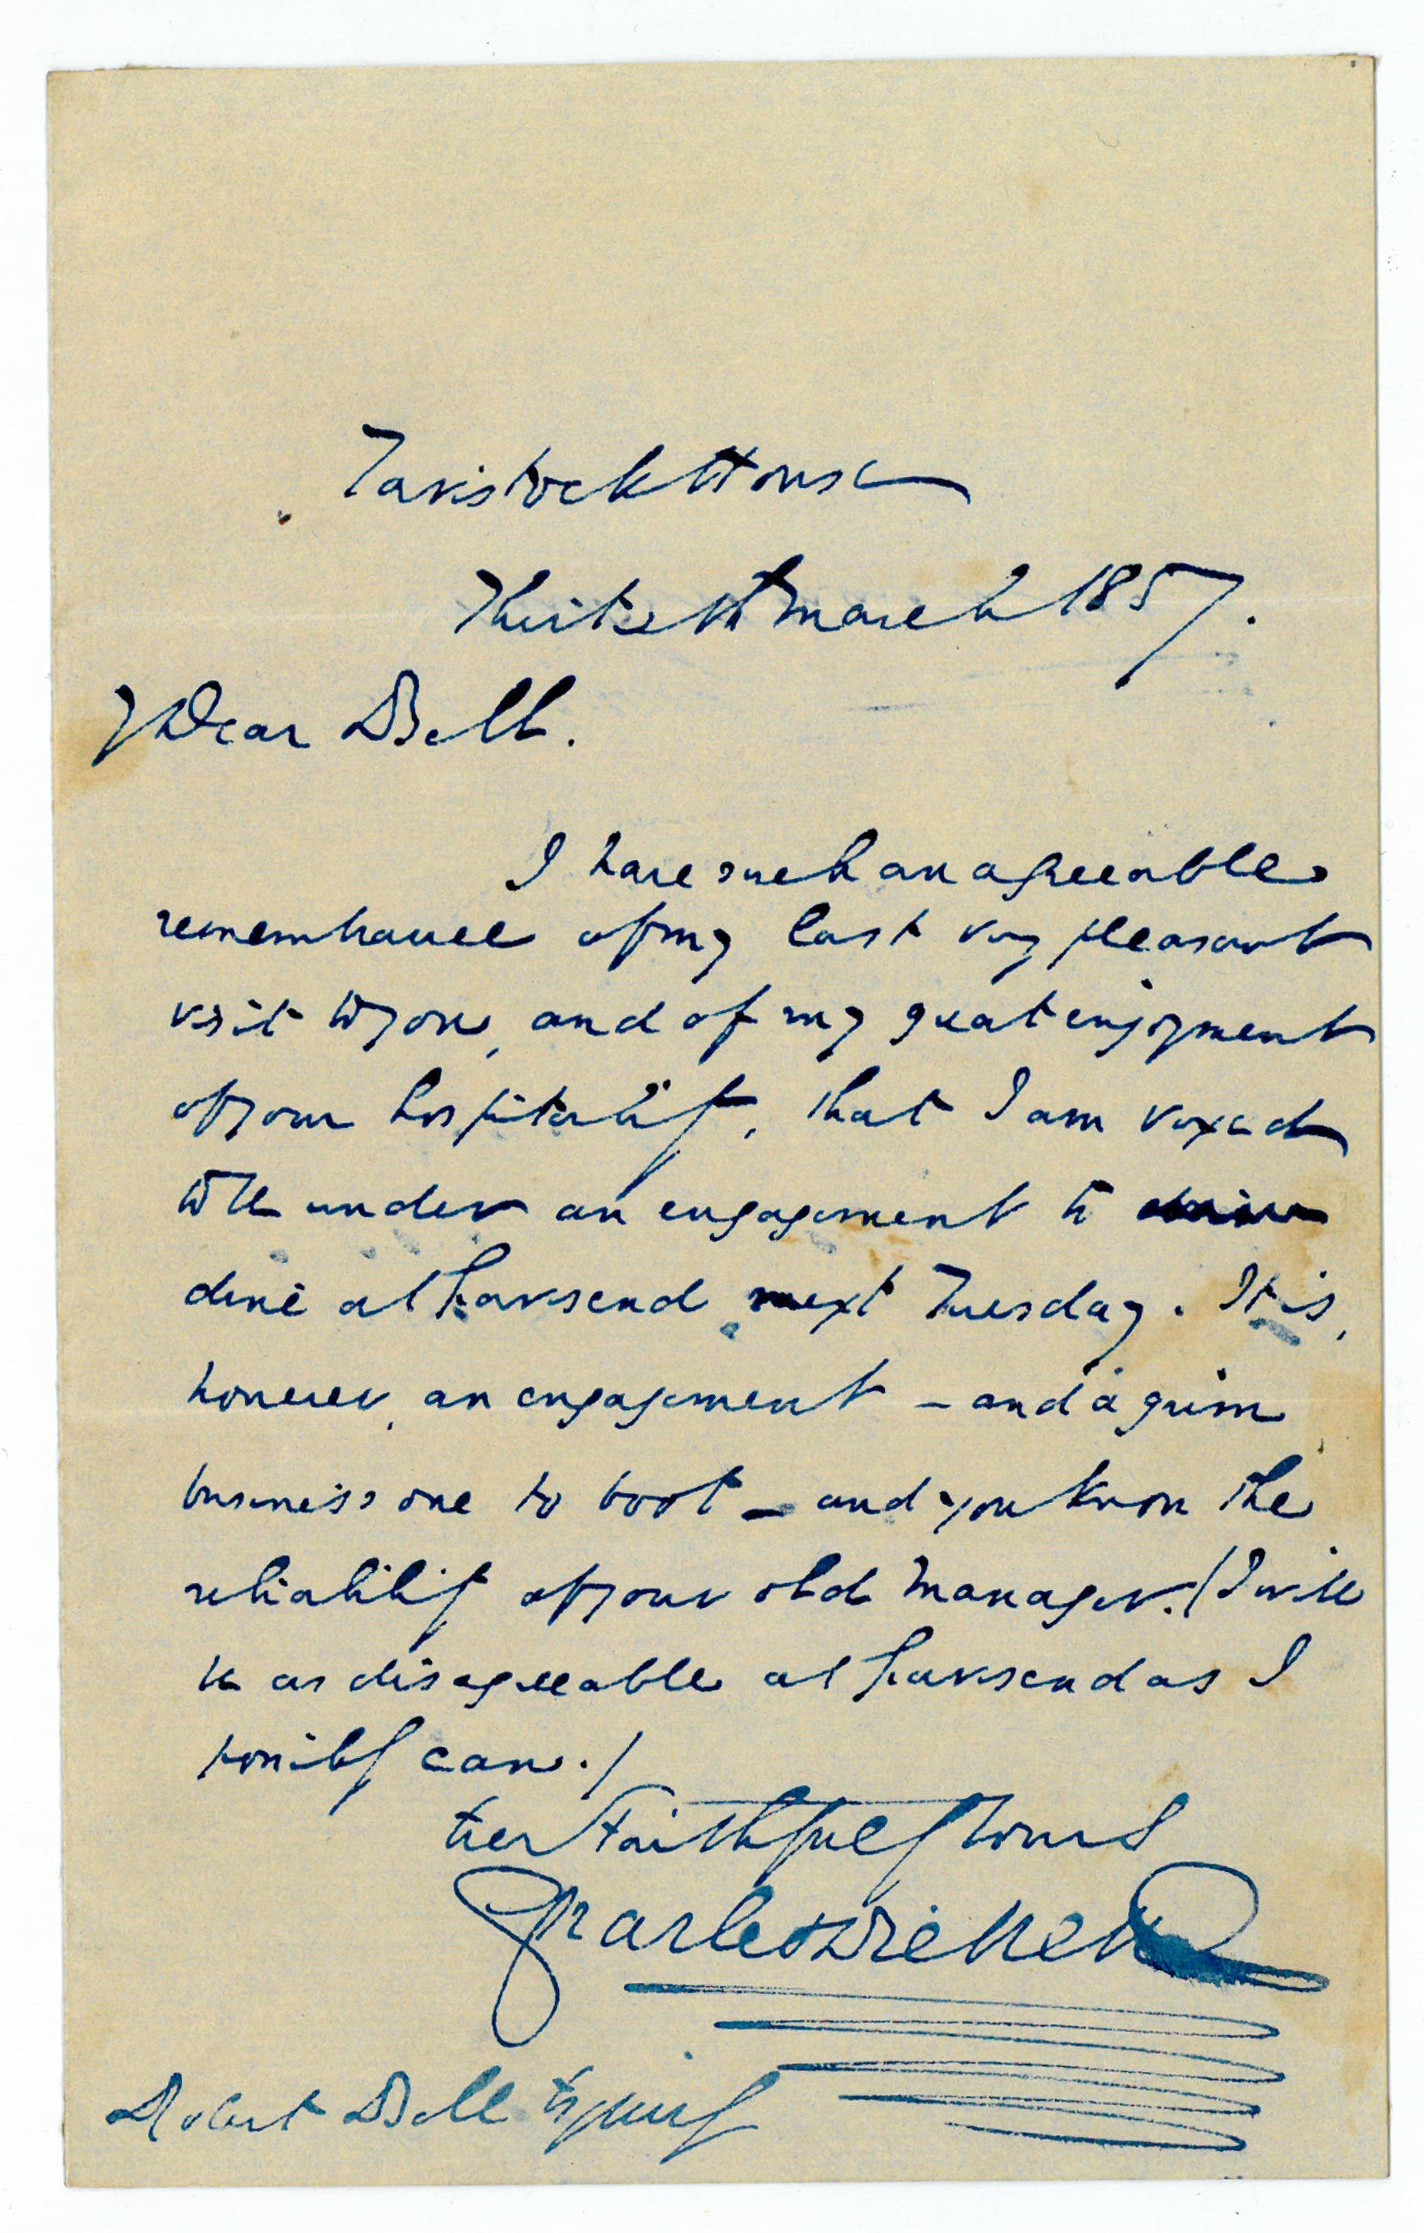 Tavistock House
Thirtieth March 1857.
My Dear Bell.
I have such an agreeable
remembrance of my last very pleasant
visit to you, and of my great enjoyment
of your hospitality, that I am vexed
to be under an engagement to
dine at Gravesend next Tuesday. It is,
however, an engagement – and a grim
business one to boot – and you know the
reliability of your old Manager. (I will
be as disagreeable at Gravesend as I
possibly can.)
Ever Faithfully Yours
Charles Dickens
Robert Bell Esquire